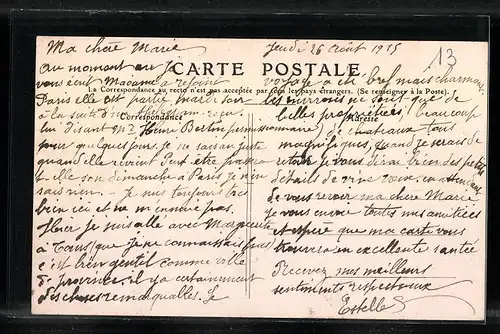 Ma chère Marie
Jeudi 26 Août 1915
13
au moment où je
vous écrit Madame a rejoint
CARTE POSTALE
La Correspondance au recto n'est pas acceptée par tous les pays étrangers. (Se renseigner à la Poste).
Correspondance
Adresse
Paris elle est partie mardi soir
à la suite d'
lui disant que Mr Henri Bertin permissionnaire
pour quelques jours je ne sais au juste
quand elle revient Peut être passera
t-elle son dimanche à Paris je n'en
sais rien - Je me toujours très
bien ici et ne m'ennuie pas.
Hier je suis allé avec Marguerite
à Tours (que je ne connaissais pas)
c'est bien gentil comme ville
de province. il y a certainement
des choses remarquables. Le
voyage a été bref mais charmant
les environs ne sont que de
belles propriétés, beaucoup
de châteaux tous
magnifiques, quand je serais de
retour je vous dirai bien des petits
détails de vive voix. en attendant
de vous revoir ma chère Marie
je vous envoie toutes mes amitiées
et espère que ma carte vous
trouvera en excellente santée
Recevez mes meilleurs
sentiments respectueux
Estelle